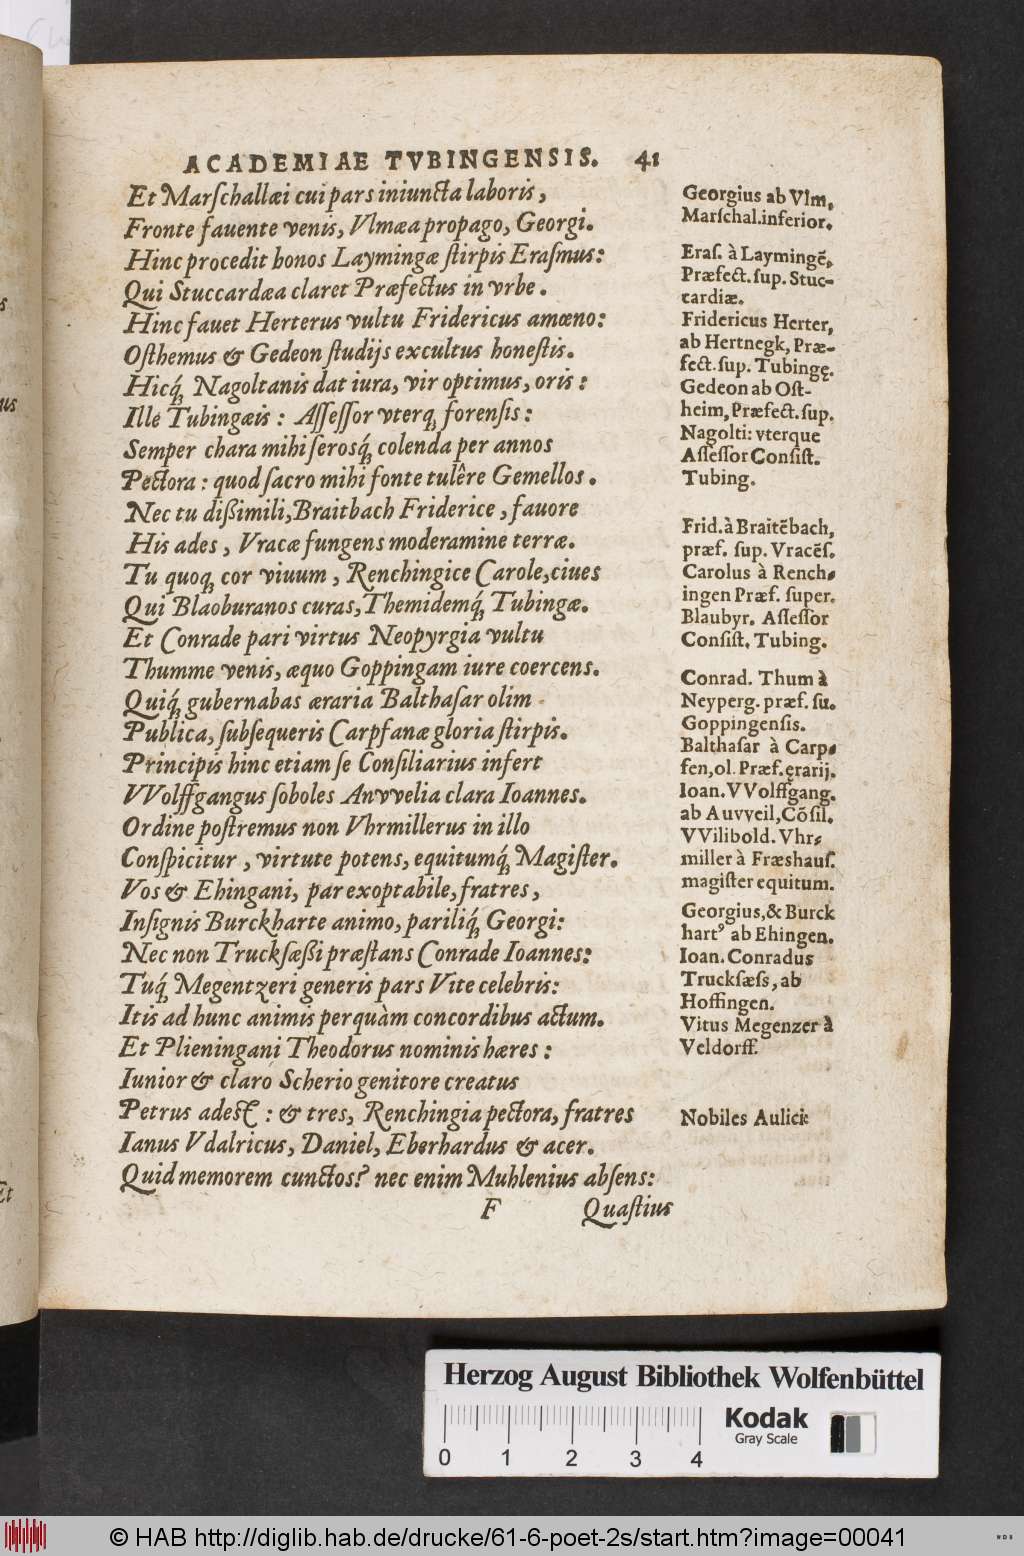 ACADEMIAE TVBINGENSIS. 41
Et Marſchallæi cui pars iniuncta laboris,
Fronte fauente venis, Vlmæa propago, Georgi.
Hinc procedit honos Laymingæ ſtirpis Eraſmus:
Qui Stuccardæa claret Præfectus in vrbe.
Hinc fauet Herterus vultu Fridericus amœno:
Oſthemus & Gedeon ſtudijs excultus honeſtis.
Hicq́; Nagoltanis dat iura, vir optimus, oris:
Ille Tubingæis: Aſſeſſor vterq; forenſis:
Semper chara mihi ſerosq́; colenda per annos
Pectora: quod ſacro mihi fonte tulêre Gemellos.
Nec tu dißimili, Braitbach Friderice, fauore
His ades, Vracæ fungens moderamine terræ.
Tu quoq; cor viuum, Renchingice Carole, ciues
Qui Blaoburanos curas, Themidemq́; Tubingæ.
Et Conrade pari virtus Neopyrgia vultu
Thumme venis, æquo Goppingam iure coercens.
Quiq́; gubernabas æraria Balthaſar olim
Publica, ſubſequeris Carpfanæ gloria ſtirpis.
Principis hinc etiam ſe Conſiliarius infert
VVolffgangus ſoboles Anvvelia clara Ioannes.
Ordine poſtremus non Vhrmillerus in illo
Conſpicitur, virtute potens, equitumq́; Magiſter.
Vos & Ehingani, par exoptabile, fratres,
Inſignis Burckharte animo, pariliq́; Georgi:
Nec non Truckſæßi præſtans Conrade Ioannes:
Tuq́; Megentzeri generis pars Vite celebris:
Itis ad hunc animis perquàm concordibus actum.
Et Plieningani Theodorus nominis hæres:
Iunior & claro Scherio genitore creatus
Petrus adeſt: & tres, Renchingia pectora, fratres
Ianus Vdalricus, Daniel, Eberhardus & acer.
Quid memorem cunctos? nec enim Muhlenius abſens:
F Quaſtius
Georgius ab Vlm,
Marſchal. inferior.
Eraſ. à Laymingẽ,
Præfect. ſup. Stuc-
cardiæ.
Fridericus Herter,
ab Hertnegk, Præ-
fect. ſup. Tubingę.
Gedeon ab Oſt-
heim, Præfect. ſup.
Nagolti: vterque
Aſſeſſor Conſiſt.
Tubing.
Frid. à Braitẽbach,
præf. ſup. Vracẽſ.
Carolus à Rench-
ingen Præf. ſuper.
Blaubyr. Aſſeſſor
Conſiſt. Tubing.
Conrad. Thum à
Neyperg. præf. ſu.
Goppingenſis.
Balthaſar à Carp-
fen, ol. Præf. ęrarij.
Ioan. VVolffgang.
ab Auvveil, Cõſil.
VVilibold. Vhr-
miller à Fræshauſ.
magiſter equitum.
Georgius, & Burck
hartꝰ ab Ehingen.
Ioan. Conradus
Truckſæſs, ab
Hoffingen.
Vitus Megenzer à
Veldorff.
Nobiles Aulici:
us
Et
Herzog August Bibliothek Wolfenbüttel
Kodak
Gray Scale
0 1 2 3 4
© HAB http://diglib.hab.de/drucke/61-6-poet-2s/start.htm?image=00041